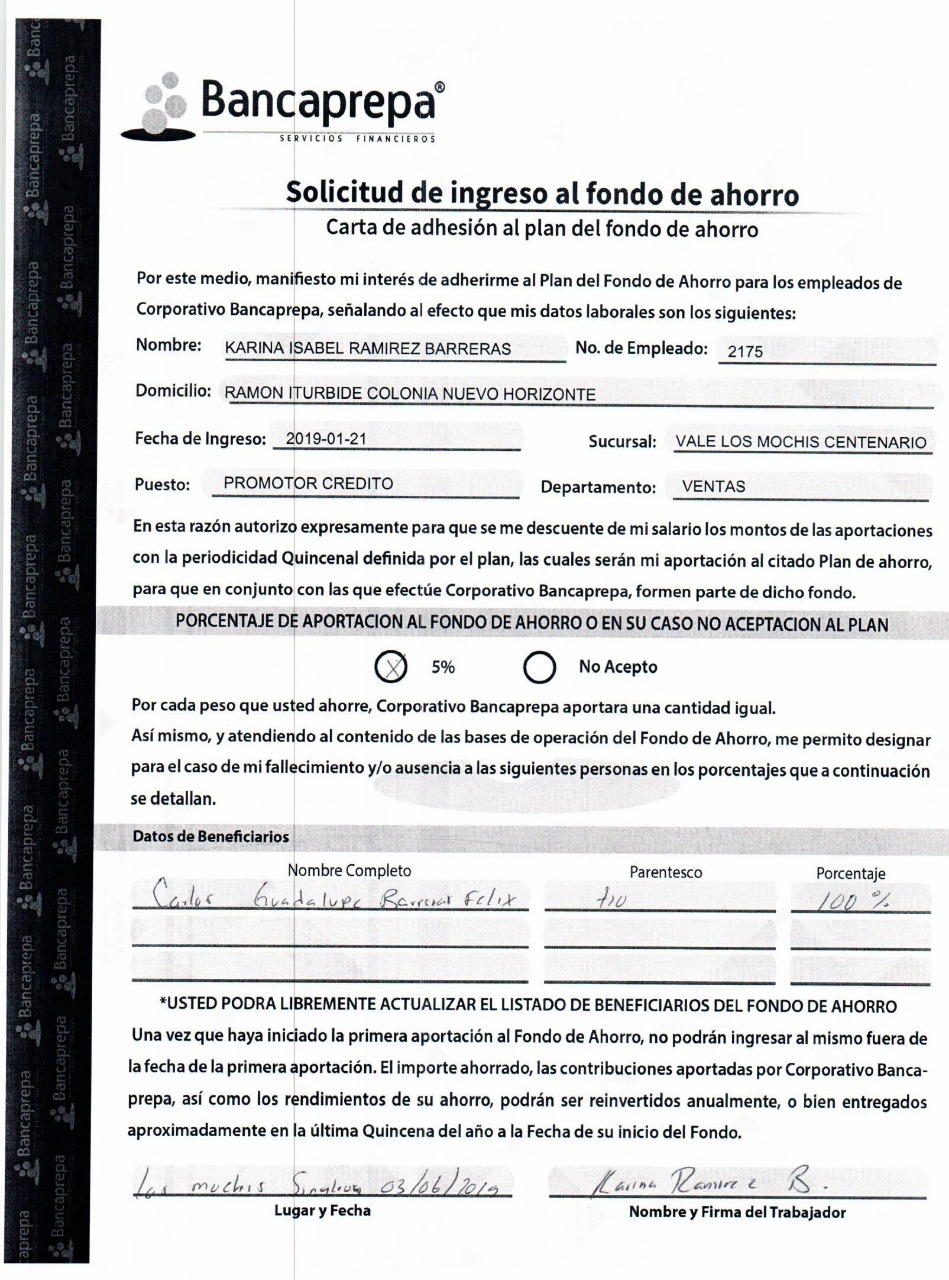 Bancaprepa®
SERVICIOS FINANCIEROS
Solicitud de ingreso al fondo de ahorro
Carta de adhesión al plan del fondo de ahorro
Por este medio, manifiesto mi interés de adherirme al Plan del Fondo de Ahorro para los empleados de
Corporativo Bancaprepa, señalando al efecto que mis datos laborales son los siguientes:
Nombre: KARINA ISABEL RAMIREZ BARRERAS No. de Empleado: 2175
Domicilio: RAMON ITURBIDE COLONIA NUEVO HORIZONTE
Fecha de Ingreso: 2019-01-21 Sucursal: VALE LOS MOCHIS CENTENARIO
Puesto: PROMOTOR CREDITO Departamento: VENTAS
En esta razón autorizo expresamente para que se me descuente de mi salario los montos de las aportaciones
con la periodicidad Quincenal definida por el plan, las cuales serán mi aportación al citado Plan de ahorro,
para que en conjunto con las que efectúe Corporativo Bancaprepa, formen parte de dicho fondo.
PORCENTAJE DE APORTACION AL FONDO DE AHORRO O EN SU CASO NO ACEPTACION AL PLAN
X 5% No Acepto
Por cada peso que usted ahorre, Corporativo Bancaprepa aportara una cantidad igual.
Así mismo, y atendiendo al contenido de las bases de operación del Fondo de Ahorro, me permito designar
para el caso de mi fallecimiento y/o ausencia a las siguientes personas en los porcentajes que a continuación
se detallan.
Datos de Beneficiarios
Nombre Completo Parentesco Porcentaje
Carlos Guadalupe Barreras Felix tio 100 %
*USTED PODRA LIBREMENTE ACTUALIZAR EL LISTADO DE BENEFICIARIOS DEL FONDO DE AHORRO
Una vez que haya iniciado la primera aportación al Fondo de Ahorro, no podrán ingresar al mismo fuera de
la fecha de la primera aportación. El importe ahorrado, las contribuciones aportadas por Corporativo Banca-
prepa, así como los rendimientos de su ahorro, podrán ser reinvertidos anualmente, o bien entregados
aproximadamente en la última Quincena del año a la Fecha de su inicio del Fondo.
Los mochis Sinaloa 03/06/2019 Karina Ramirez B.
Lugar y Fecha Nombre y Firma del Trabajador